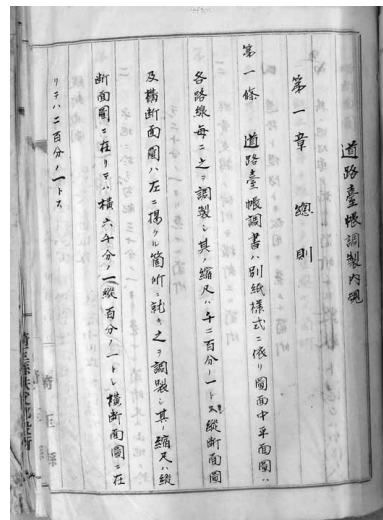 道路臺帳調製內規
第一章 總則
第一條 道路臺帳調書ハ別紙樣式ニ依リ圖面中平面圖ハ
各路線每ニ之ヲ調製シ其ノ縮尺ハ千二百分ノ一トス縱斷面圖
及橫斷面圖ハ左ニ揭クル箇所ニ就キ之ヲ調製シ其ノ縮尺ハ縱
斷面圖ニ在リテハ橫六千分ノ一縱百分ノ一トシ橫斷面圖ニ在
リテハ二百分ノ一トス
埼玉縣